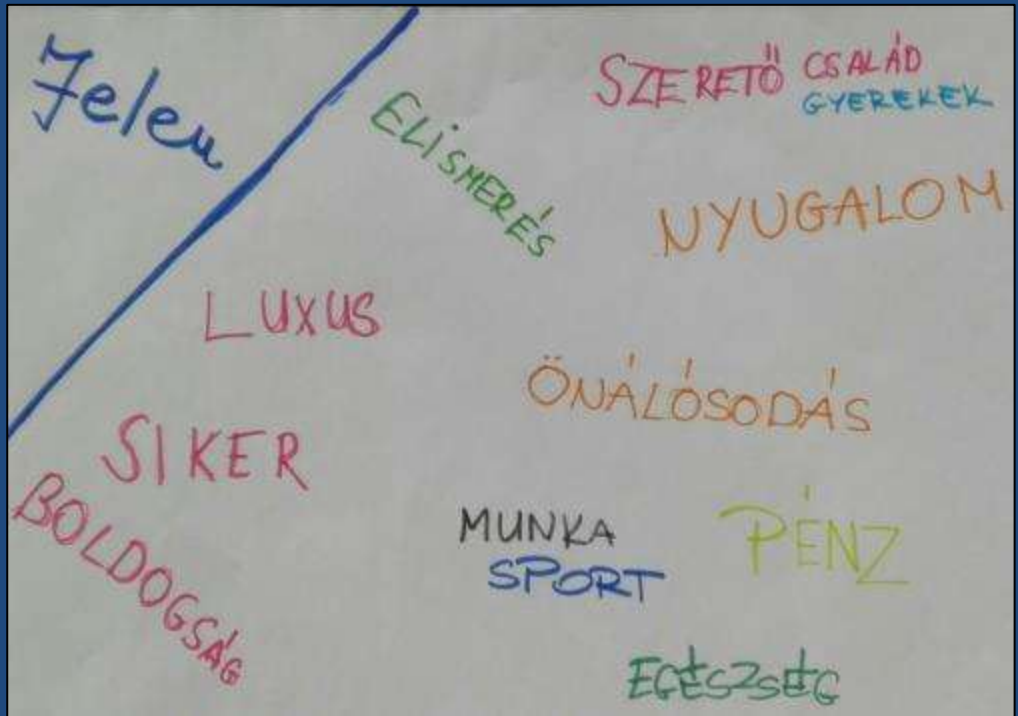 Jelen
ELISMERÉS
SZERETŐ CSALÁD
GYEREKEK
NYUGALOM
LUXUS
ÖNÁLÓSODÁS
SIKER
BOLDOGSÁG
MUNKA
SPORT
PÉNZ
EGÉSZSÉG